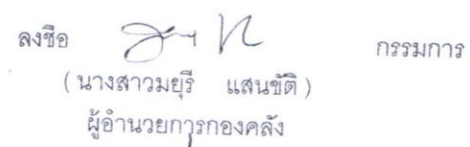 ลงชื่อ กรรมการ
(นางสาวมยุรี แสนขัติ)
ผู้อำนวยการกองคลัง